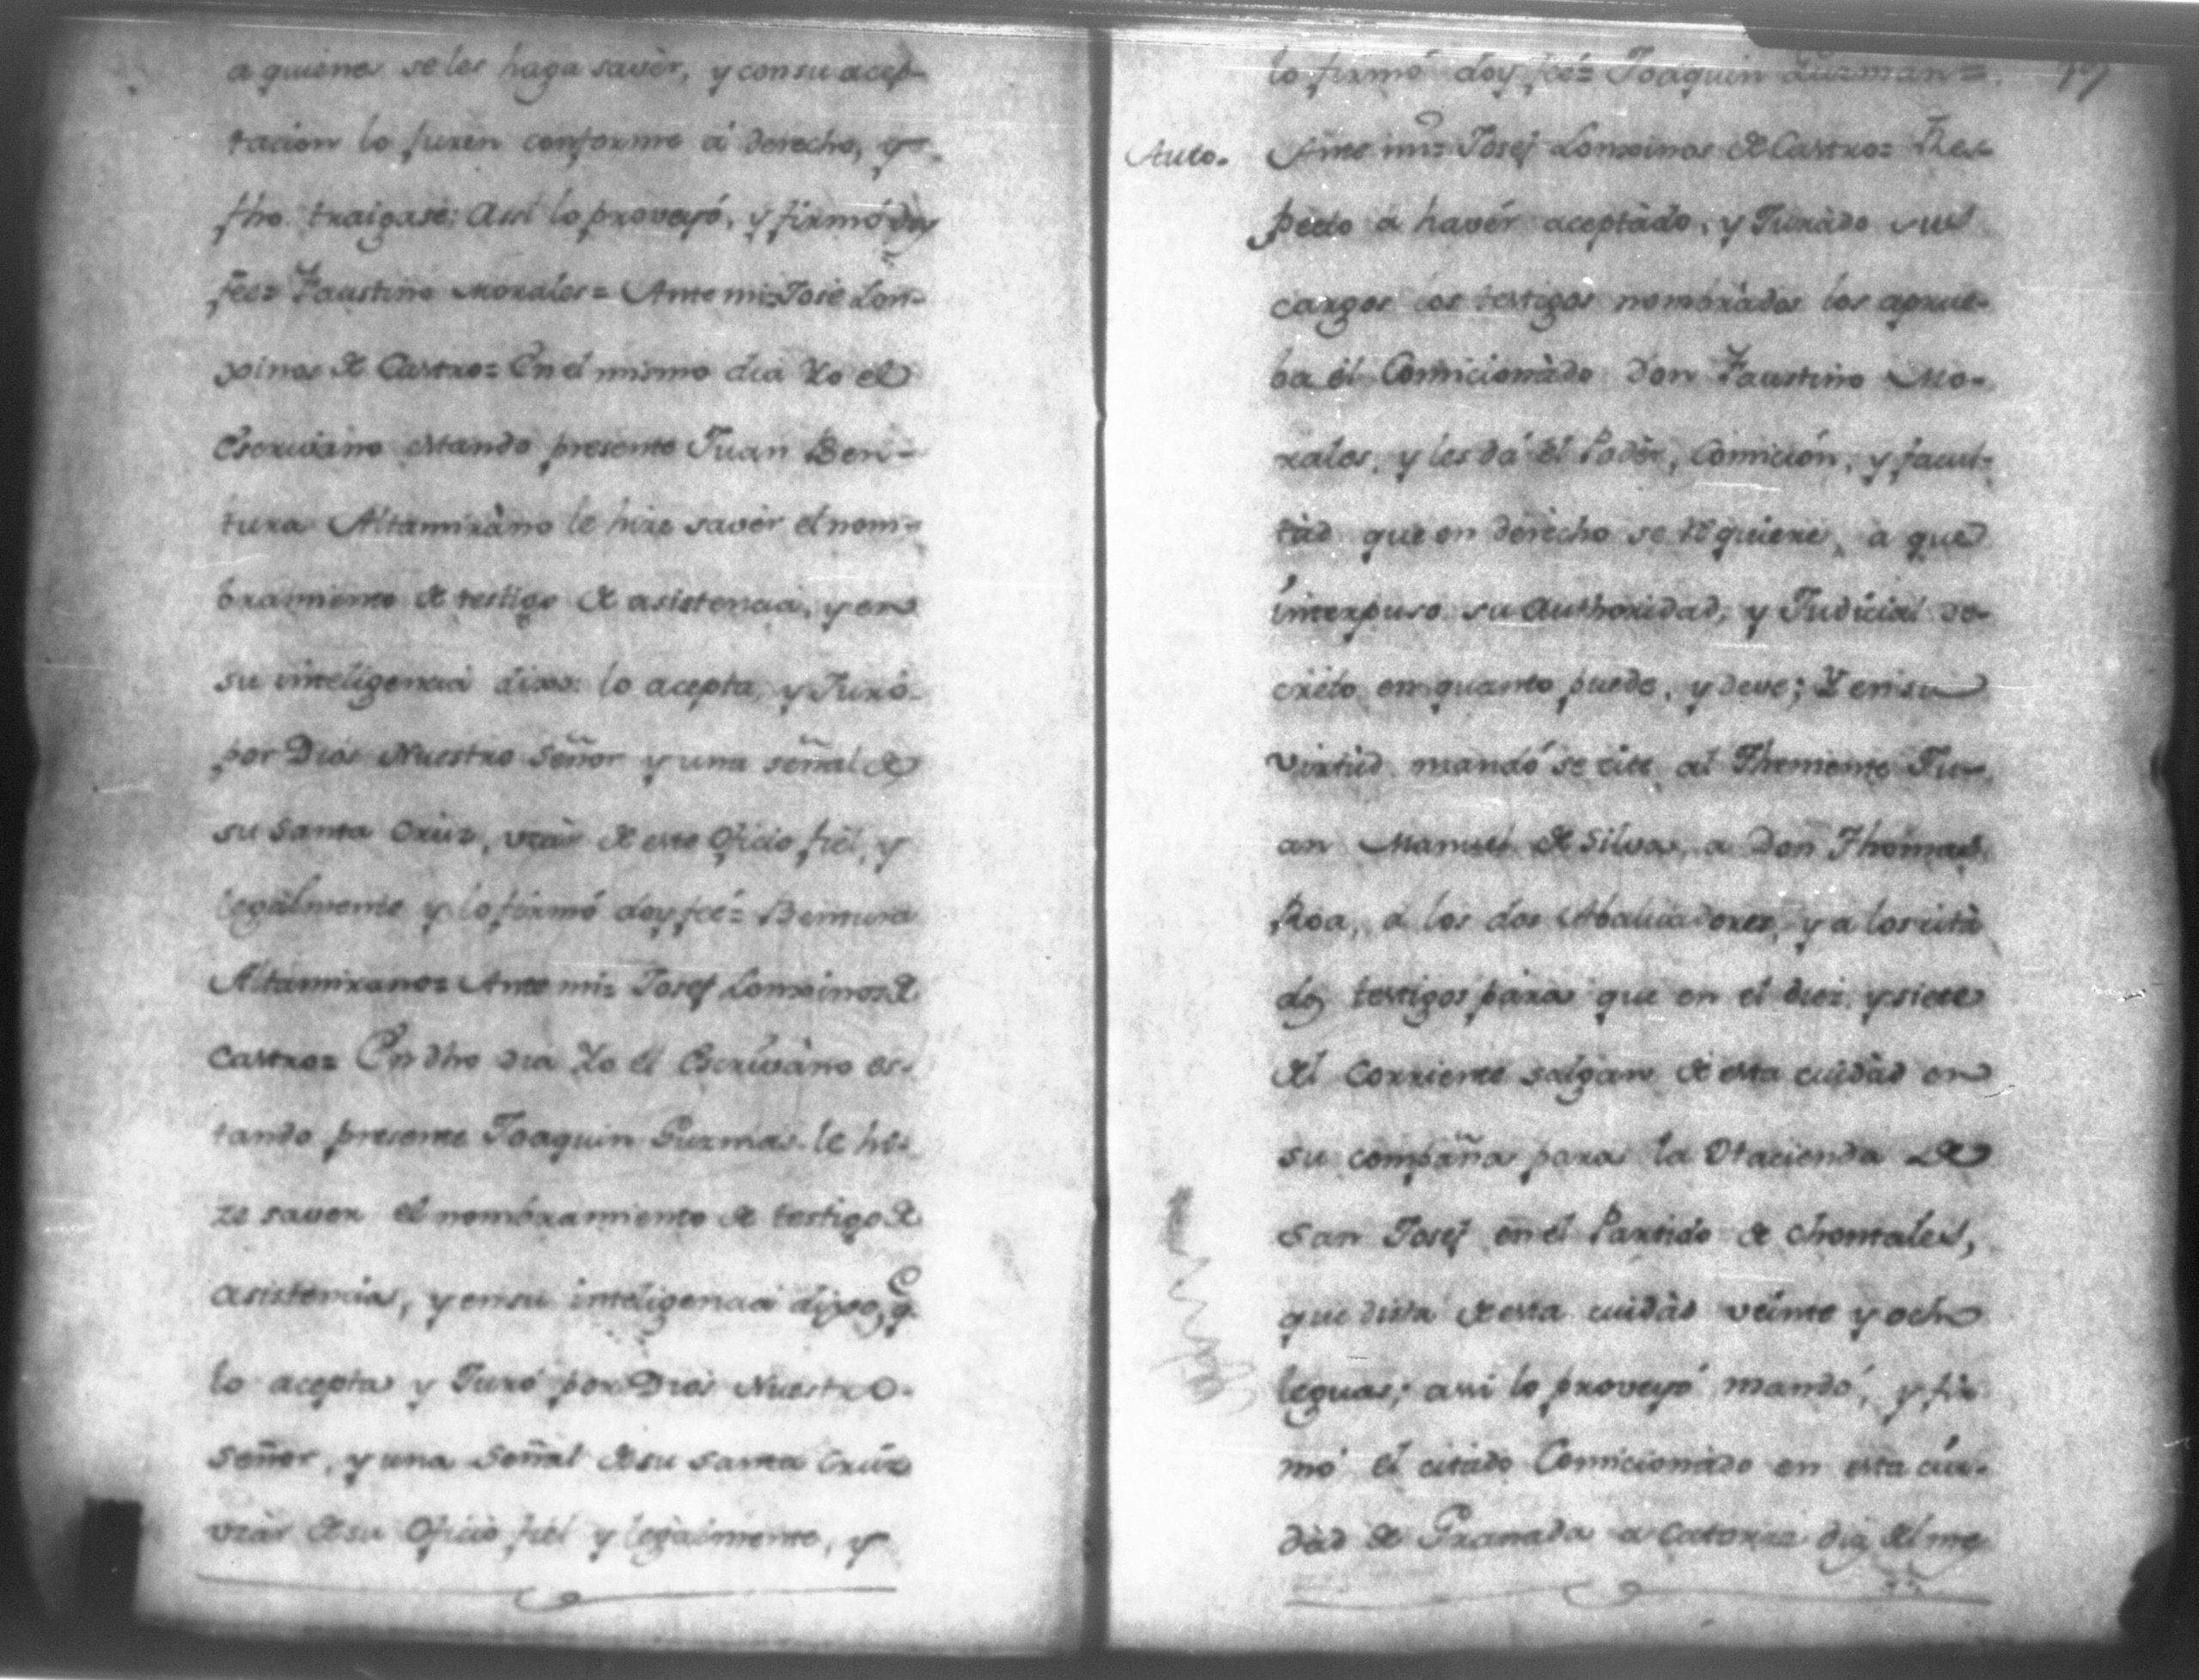 a quienes se les haga savèr, y con su acep-
tacion lo juren conforme â derecho, y
fho. traigase: Assi lo proveyó, y firmó doy
feé= Faustino Morales= Ante mi= José Lom-
xinos de Castro= En el mismo dia Yo el
Escrivano estando presente Juan Ben-
tura Altamiràno le hize savèr el nom-
bramiento de testigo de asistencia, y en
su inteligencia dixo: lo acepta, y Juró
por Dios Nuestro Señor y una señal de
su Santa Cruz, vsàr de este Oficio fiel, y
legàlmente y lo firmó doy feé= Bentura
Altamirano= Ante mi= Josef Lomxinos de
Castro= En dho dia Yo el Escrivàno es-
tando presente Joaquin Guzman le hi-
ze saver el nombramiento de testigo de
asistencia, y en su inteligencia dijxo, q.e
lo acepta y Juró por Dios Nuestro
Señor, y una Señal de su Santa Crúz
vsàr de su Oficio fiel y legàlmente, y
lo firmó doy feé= Joaquin Guzman=
Auto. Ante mi= Josef Lomxinos de Castro= Res-
pecto á havér aceptàdo, y Juràdo sus
cargos los testigos nombràdos los aprue-
ba él Comicionàdo Don Faustino Mo-
rales, y les dá él Podèr, Comición, y facul-
tàd que en derecho se requiere, a que
interpuso su Authoridad, y Judicial de-
crèto en quanto puede, y deve; Y en su
virtùd mandó se cite al Theniente Ju-
an Manuel de Silva, a Don Thomas
Roa, á los dos Abaluadores, y a los cità
dos testigos para que en el diez y siete
del Corriente salgan de esta ciudàd en
su compañia para la Hacienda de
San Josef en él Partido de Chontales,
que dista de esta ciudàd veinte y ocho
leguas; assi lo proveyó mandó, y fir
mó el citàdo Comicionàdo en esta ciu-
dàd de Granada a Catorze dias del me